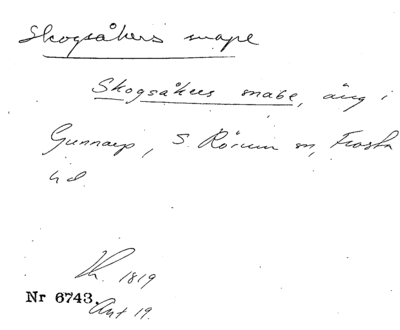 Skogsåkers snape
Skogsåkers snabe, äng i
Gunnarp, S. Rörum sn, Frosta
hd.
1819
Nr 6743.
Ant 19.